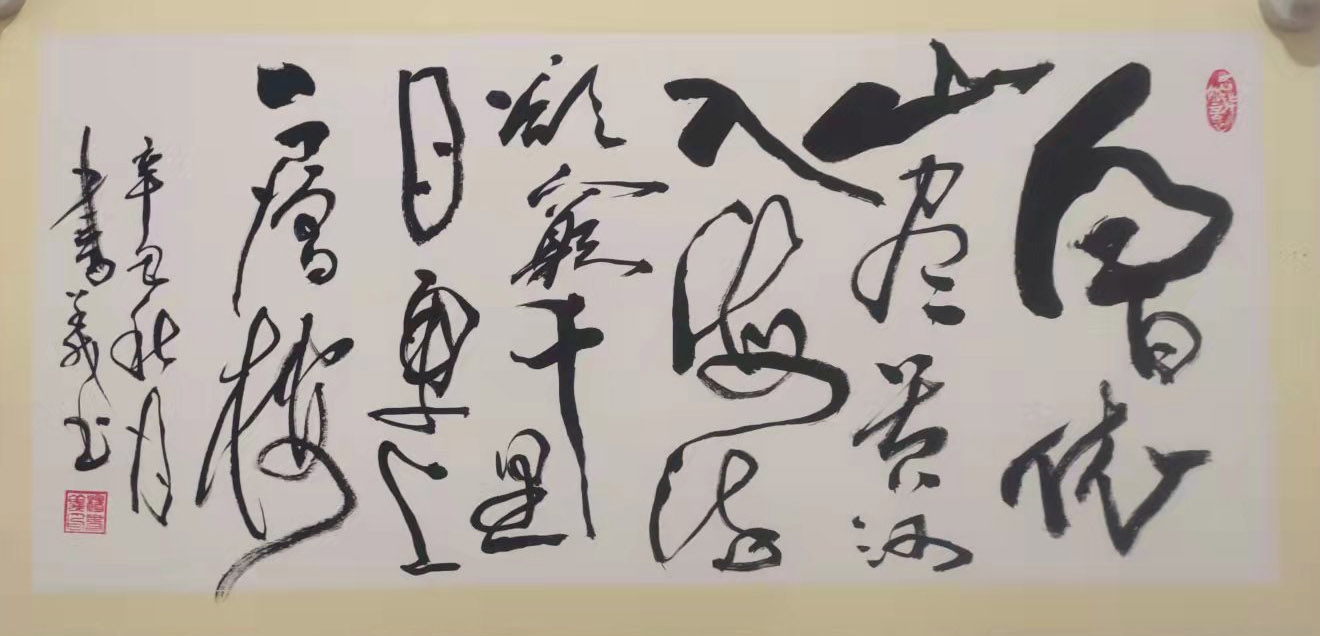 白日依
山尽黄河
入海流
欲窮千里
目更上
一層樓
辛丑秋月
書義书